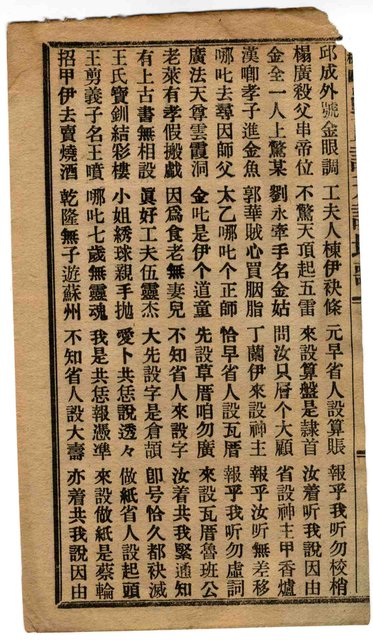 邱成外號金眼調　工夫人棟伊袂條　元早省人設算賬　報乎我听勿校梢
楊廣殺父串帝位　不驚天頂起五雷　來設算盤是隷首　汝着听我說因由
金全一人上驚某　劉永牽手名金姑　問汝只厝个大顧　省設神主甲香爐
漢啣孝子進金魚　郭華賊心買胭脂　丁蘭伊來設神主　報乎汝听無差移
哪叱去尋因師父　太乙哪叱个正師　恰早省人設瓦厝　報乎我听勿虛詞
廣法天尊雲霞洞　金叱是伊个道童　先設草厝咱勿廣　來設瓦厝魯班公
老萊有孝假搬戲　因爲食老無妻兒　不知省人來設字　汝着共我緊通知
有上古書無相設　眞好工夫伍靈杰　大先設字是倉頡　卽号恰久都袂滅
王氏寶釧結彩樓　小姐綉球親手抛　愛卜共恁說透々　做紙省人設起頭
王剪義子名王噴　哪叱七歲無靈魂　我是共恁報憑準　來設做紙是蔡輪
招甲伊去賣燒酒　乾隆無子遊蘇州　不知省人設大壽　亦着共我說因由